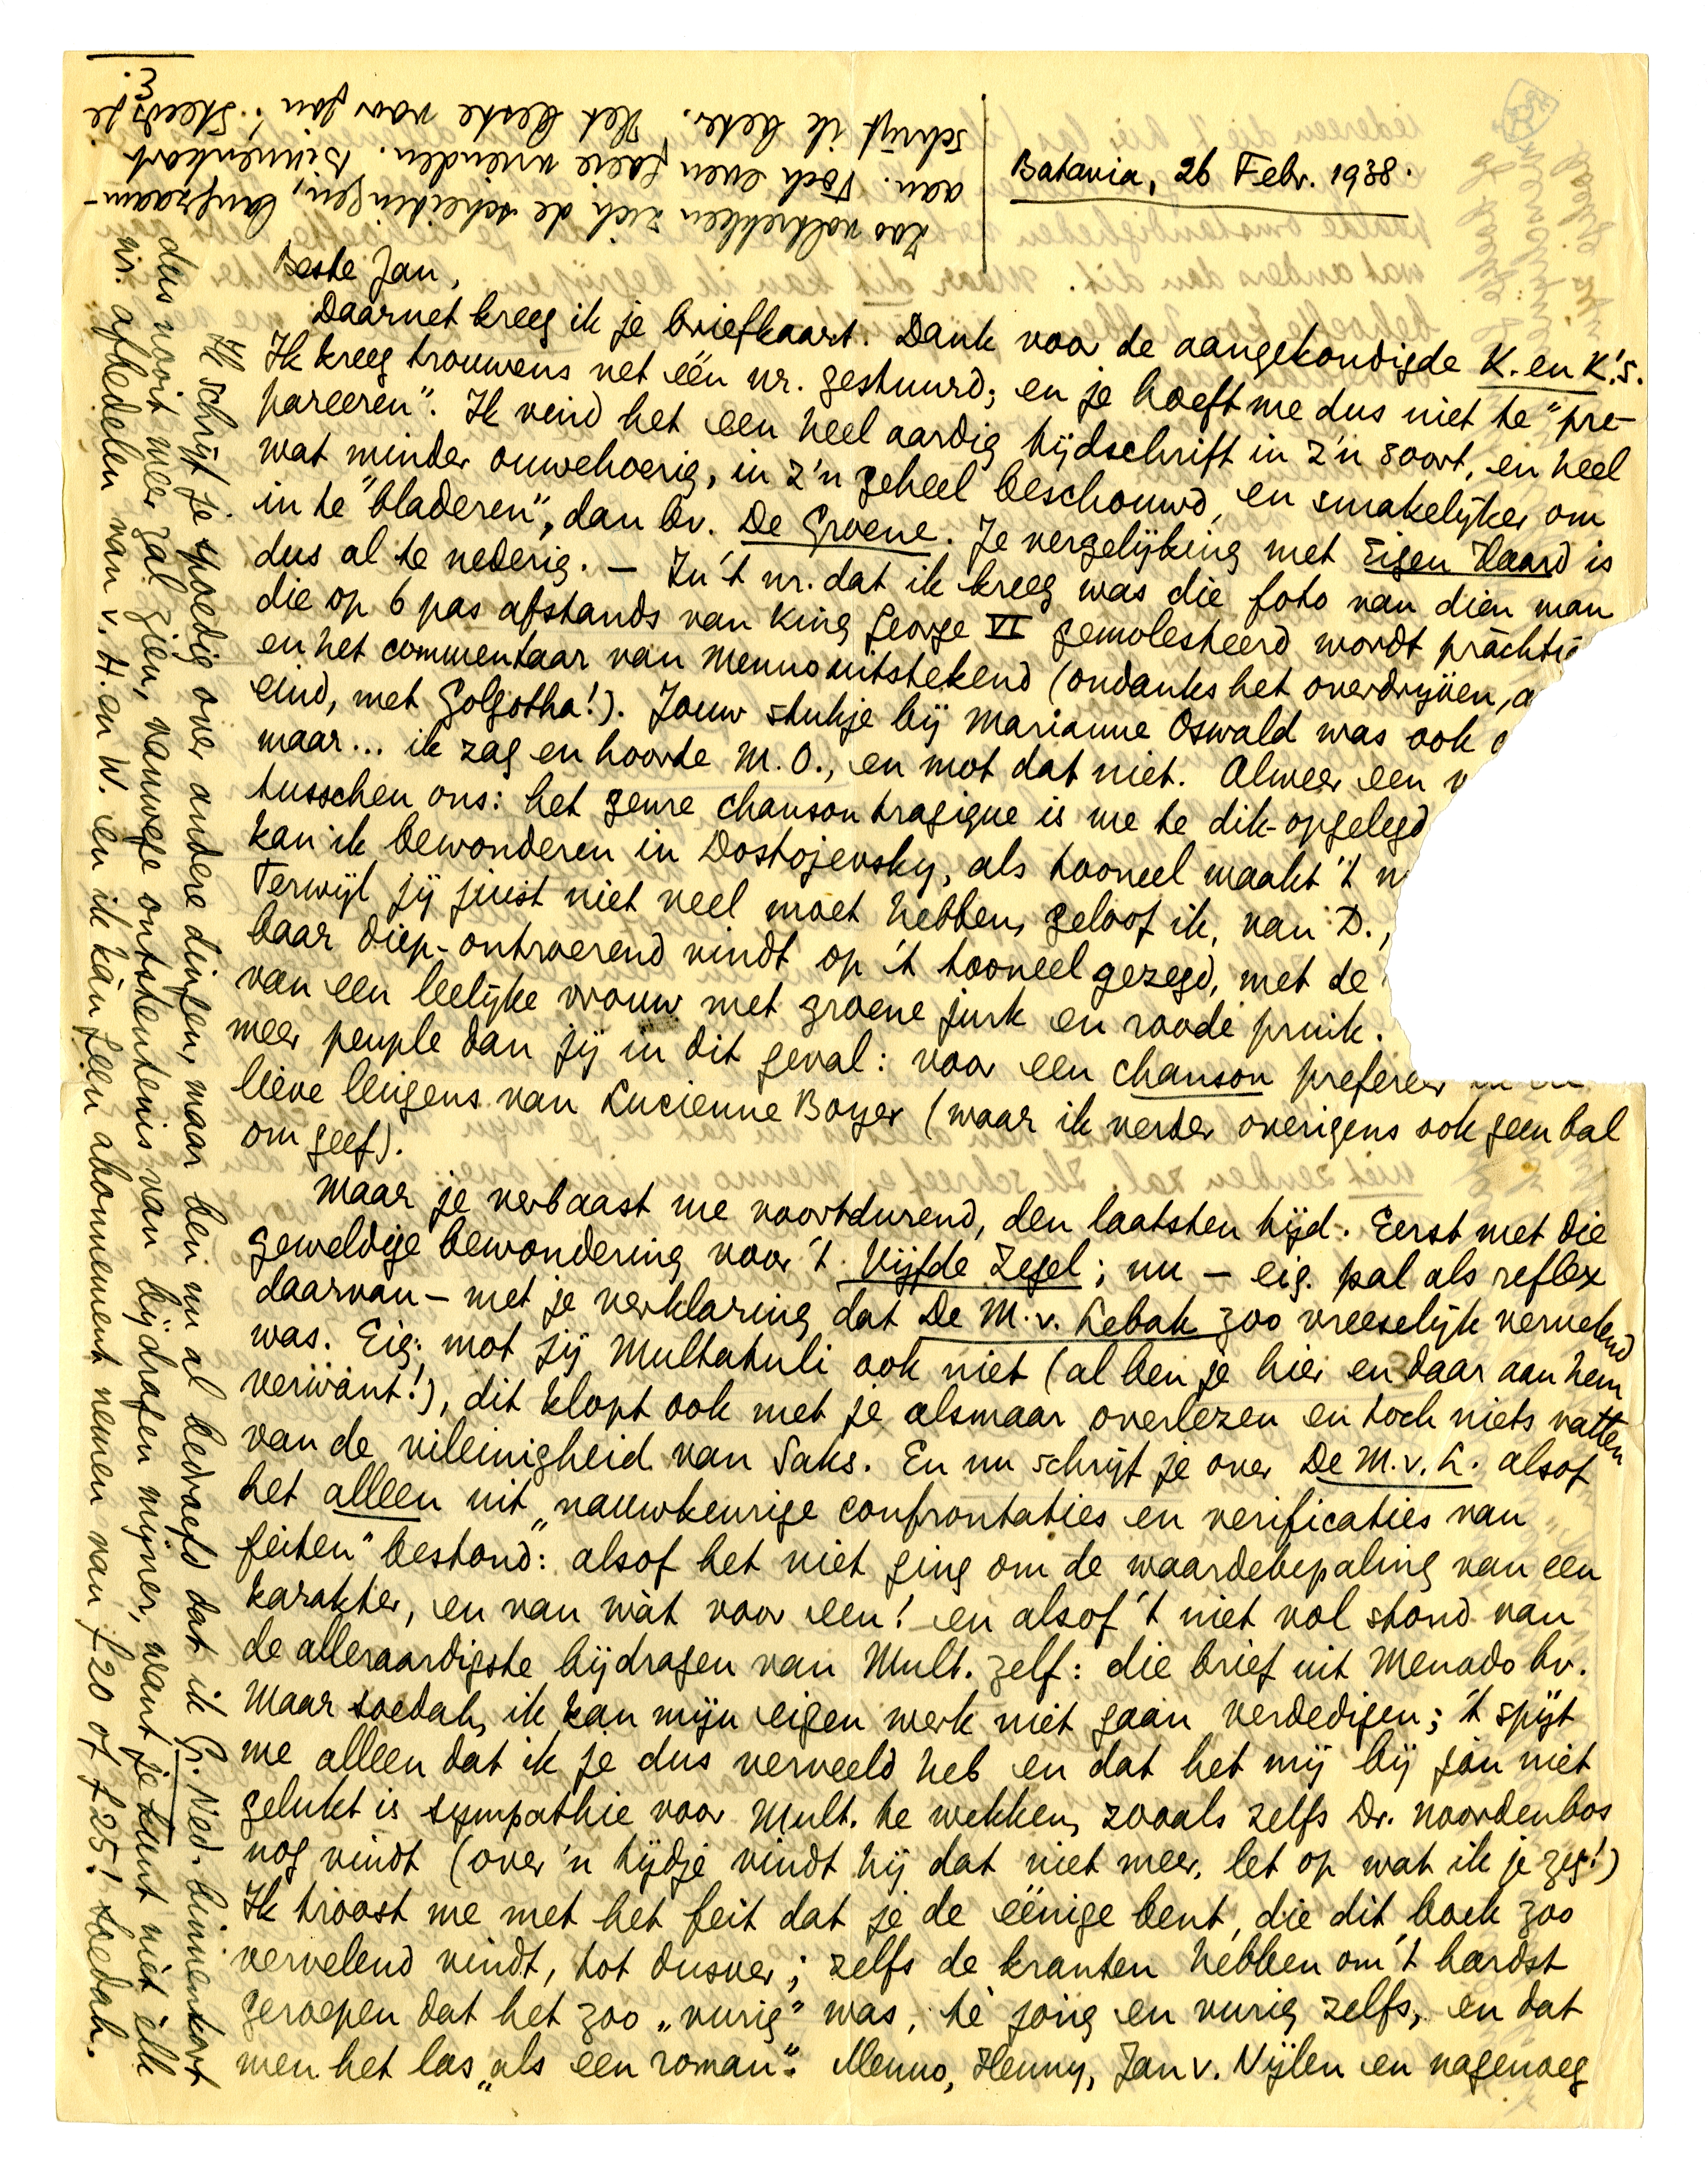 Batavia, 26 Febr. 1938.
Beste Jan,
Daarnet kreeg ik je briefkaart. Dank voor de aangekondigde K. en K.'s.
Ik kreeg trouwens net één nr. gestuurd; en je hoeft me dus niet te "pre-
pareeren". Ik vind het een heel aardig tijdschrift in z'n soort, en heel
wat minder ouwehoerig, in z'n geheel beschouwd, en smakelijker om
in te "bladeren", dan bv. De Groene. Je vergelijking met Eigen Haard is
dus al te nederig. – In 't nr. dat ik kreeg was die foto van dien man
die op 6 pas afstands van King George VI gemolesteerd wordt prachtig
en het commentaar van Menno uitstekend (ondanks het overdrijven, a
eind, met Golgotha!). Jouw stukje bij Marianne Oswald was ook
maar... ik zag en hoorde M.O., en mot dat niet. Alweer een v
tusschen ons: het genre chanson tragique is me te dik-opgelegd
kan ik bewonderen in Dostojevsky, als tooneel maakt 't
Terwijl jij juist niet veel moet hebben, geloof ik, van D.,
baar diep-ontroerend vindt op 't tooneel gezegd, met de
van een leelijke vrouw met groene jurk en roode pruik.
meer peuple dan jij in dit geval: voor een chanson prefereer
lieve leugens van Lucienne Boyer (waar ik verder overigens ook geen bal
om geef).
Maar je verbaast me voortdurend, den laatsten tijd. Eerst met die
geweldige bewondering voor 't Vijfde Zegel; nu – eig. pal als reflex
daarvan – met je verklaring dat De M. v. Lebak zoo vreeselijk vervelend
was. Eig. mot jij Multatuli ook niet (al ben je hier en daar aan hem
verwant!), dit klopt ook met je alsmaar overlezen en toch niets vatten
van de vileinigheid van Saks. En nu schrijf je over De M. v. L. alsof
het alleen uit „nauwkeurige confrontaties en verificaties van
feiten" bestond: alsof het niet ging om de waardebepaling van een
karakter, en van wàt voor een! en alsof 't niet vol stond van
de alleraardigste bijdragen van Mult. zelf: die brief uit Menado bv.
Maar soedah, ik kan mijn eigen werk niet gaan verdedigen; 't spijt
me alleen dat ik je dus verveeld heb en dat het mij bij jou niet
gelukt is sympathie voor Mult. te wekken, zooals zelfs Dr. Noordenbos
nog vindt (over 'n tijdje vindt hij dat niet meer, let op wat ik je zeg!)
Ik troost me met het feit dat je de eénige bent, die dit boek zoo
vervelend vindt, tot dusver; zelfs de kranten hebben om 't hardst
geroepen dat het zoo „vurig" was, té jong en vurig zelfs, en dat
men het las „als een roman". Menno, Henny, Jan v. Nijlen en nagenoeg
Ik schrijf je spoedig over andere dingen, maar ben nu al bedroefd dat ik Gr. Ned. binnenkort
dus nooit meer zal zien, vanwege ontstentenis van bijdragen mijner, want je kunt niet èlk
nr. afbedelen van v. H. en W. en ik kàn geen abonnement nemen van f 20 of f 25! Soedah.
Zoo voltrekken zich de scheidingen, langzaam-
aan. Toch even goeie vrienden. Binnenkort
schrijf ik beter. Het beste van jou! Steeds je
E.